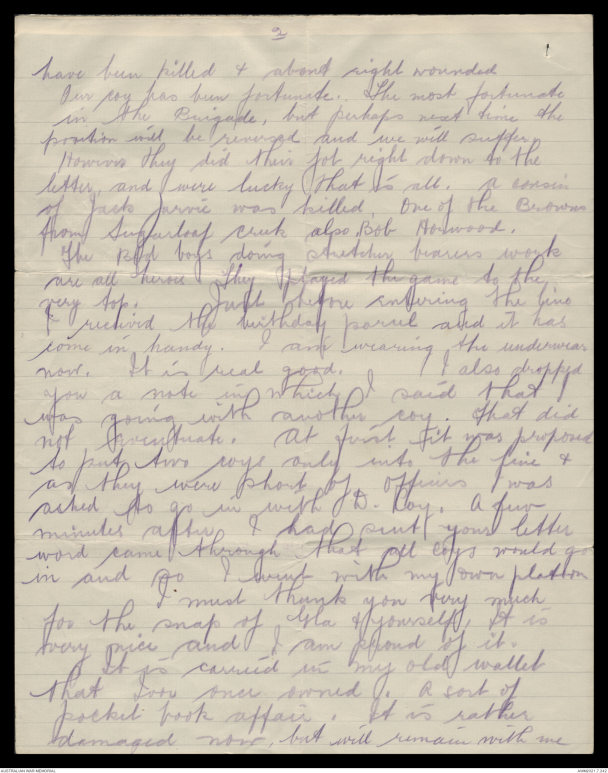 2
have been killed & about eight wounded
Our coy has been fortunate. The most fortunate
in the Brigade, but perhaps next time the
position will be reversed and we will suffer.
However they did their job right down to the
letter, and were lucky that is all. A cousin
of Jack Jarvie was killed. One of the Browns
from Sugarloaf creek also, Bob Horwood.
The boys doing stretcher bearers work
are all heroes. They played the game to the
very top. Just before entering the line
I received the birthday parcel and it has
come in handy. I am wearing the underwear
now. It is real good. I also dropped
you a note in which I said that I
was going with another coy. That did
not eventuate. At first it was proposed
to put two coys only into the line &
as they were short of officers I was
asked to go in with D. Coy. A few
minutes after I had sent your letter
word came through that all coys would go
in and so I went with my own platoon
I must thank you very much
for the snap of & yourself. It is
very nice and I am proud of it.
It is carried in my old wallet
that once owned. A sort of
pocket book affair. It is rather
damaged now, but will remain with me
AUSTRALIAN WAR MEMORIAL